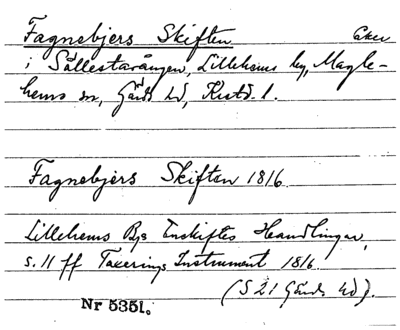 Fagnebjers Skiften Åker
i Sållestavången, Lillehems by, Magle-
hems sn, Gärds hd, Kristd. l.
Fagnebjers Skiften 1816
Lillehems Bys Enskiftes Handlingar,
s. 11 ff Taxerings Instrument 1816
(S 21 Gärds hd).
Nr 5351.